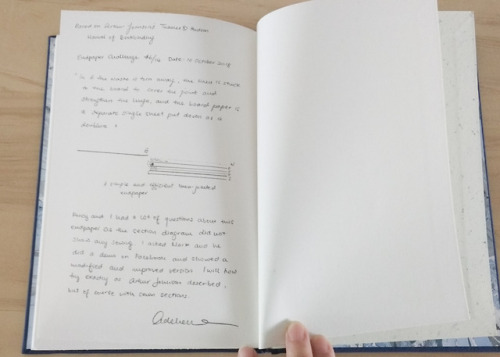 Based on Arthur Johnson's Thames & Hudson
Manual of Bookbinding
Endpaper Challenge Date: 14 October
" If the waste is torn away, the linen is stuck
to the board to cover the joint and
strengthen the and the board paper is
a separate single sheet put down as a
doublure. "
A simple and efficient linen-jointed
endpaper
and I had a lot of questions about this
endpaper as the section diagram did not
show any sewing. I asked and he
did a demo on Facebook and showed a
modified and improved version. I will first
try exactly as Arthur Johnson described,
but of course with sewn sections.
Adelene